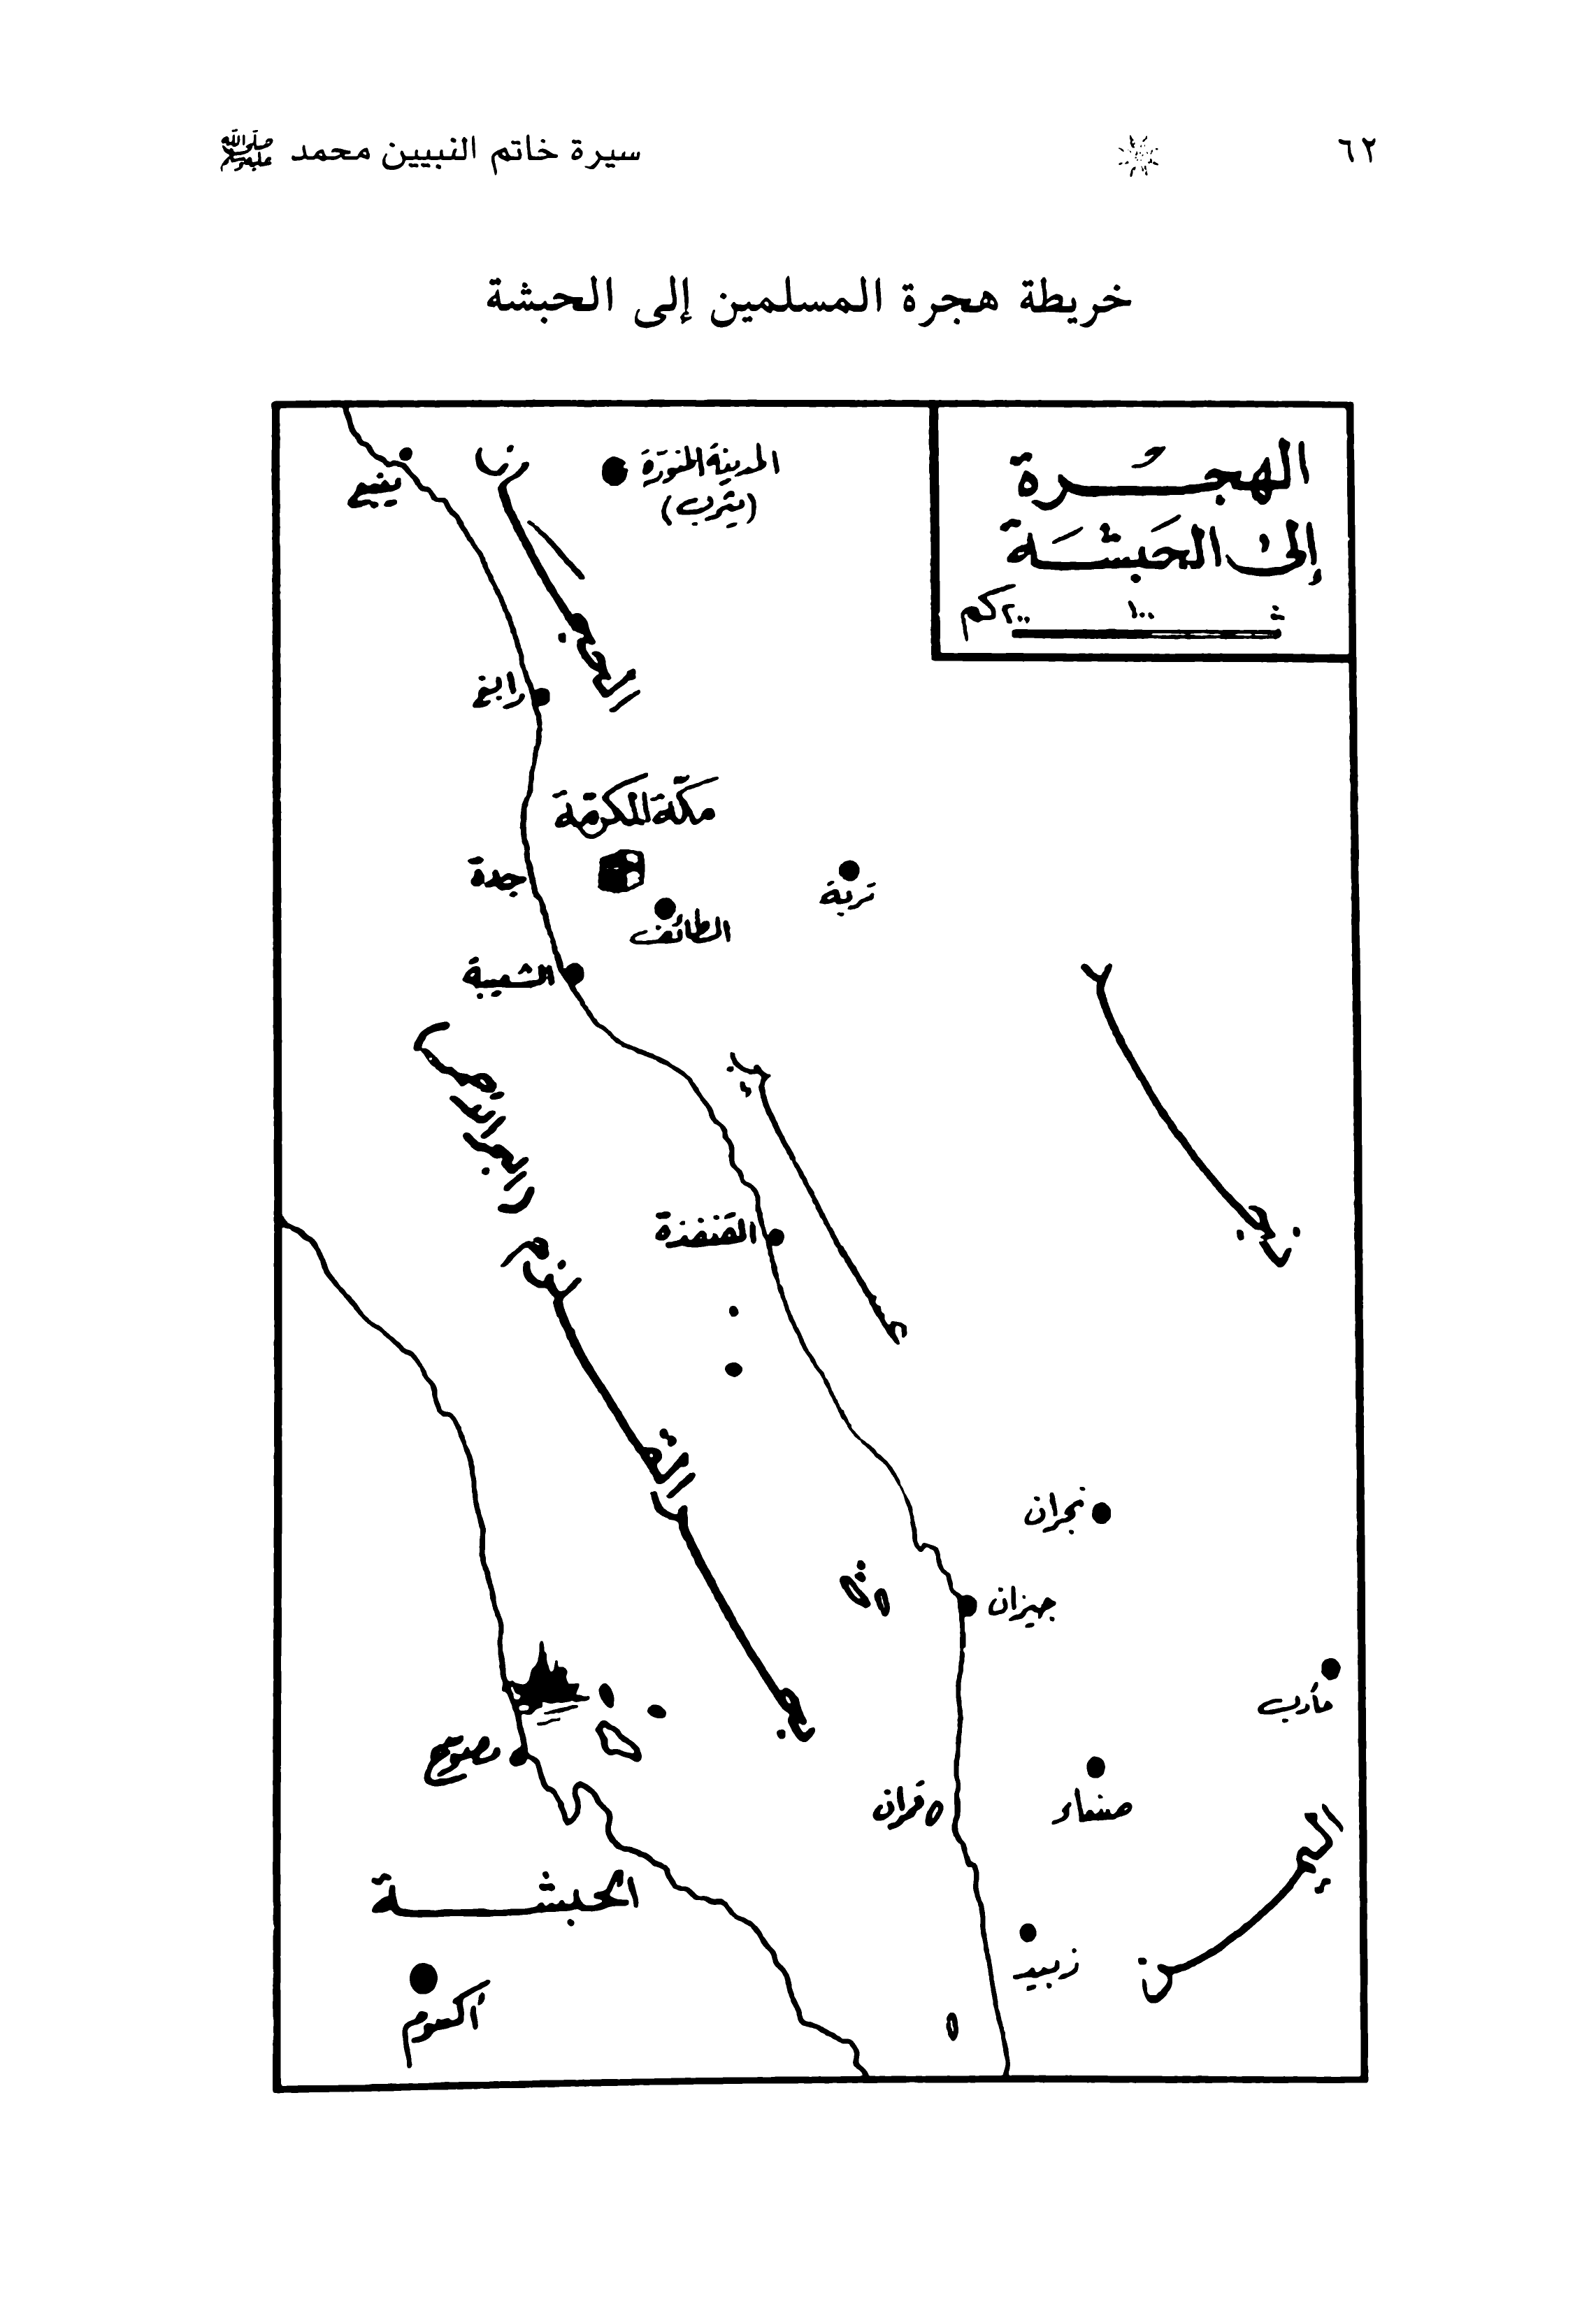 ٦٢
سيرة خاتم النبيين محمد ﷺ
خريطة هجرة المسلمين إلى الحبشة
الهجرة
إلى الحَبشَة
١٠٠
٢٠٠ كم
المدينة المنوّرة
(يثرب)
ينبع
الحجاز
رابغ
مكّة المكرّمة
جدة
تربة
الطائف
الشعيبة
البحر الأحمر
القنفذة
نجران
جيزان
مأرب
مصوع
صنعاء
قمران
اليمن
الحبشة
زبيد
أكسوم